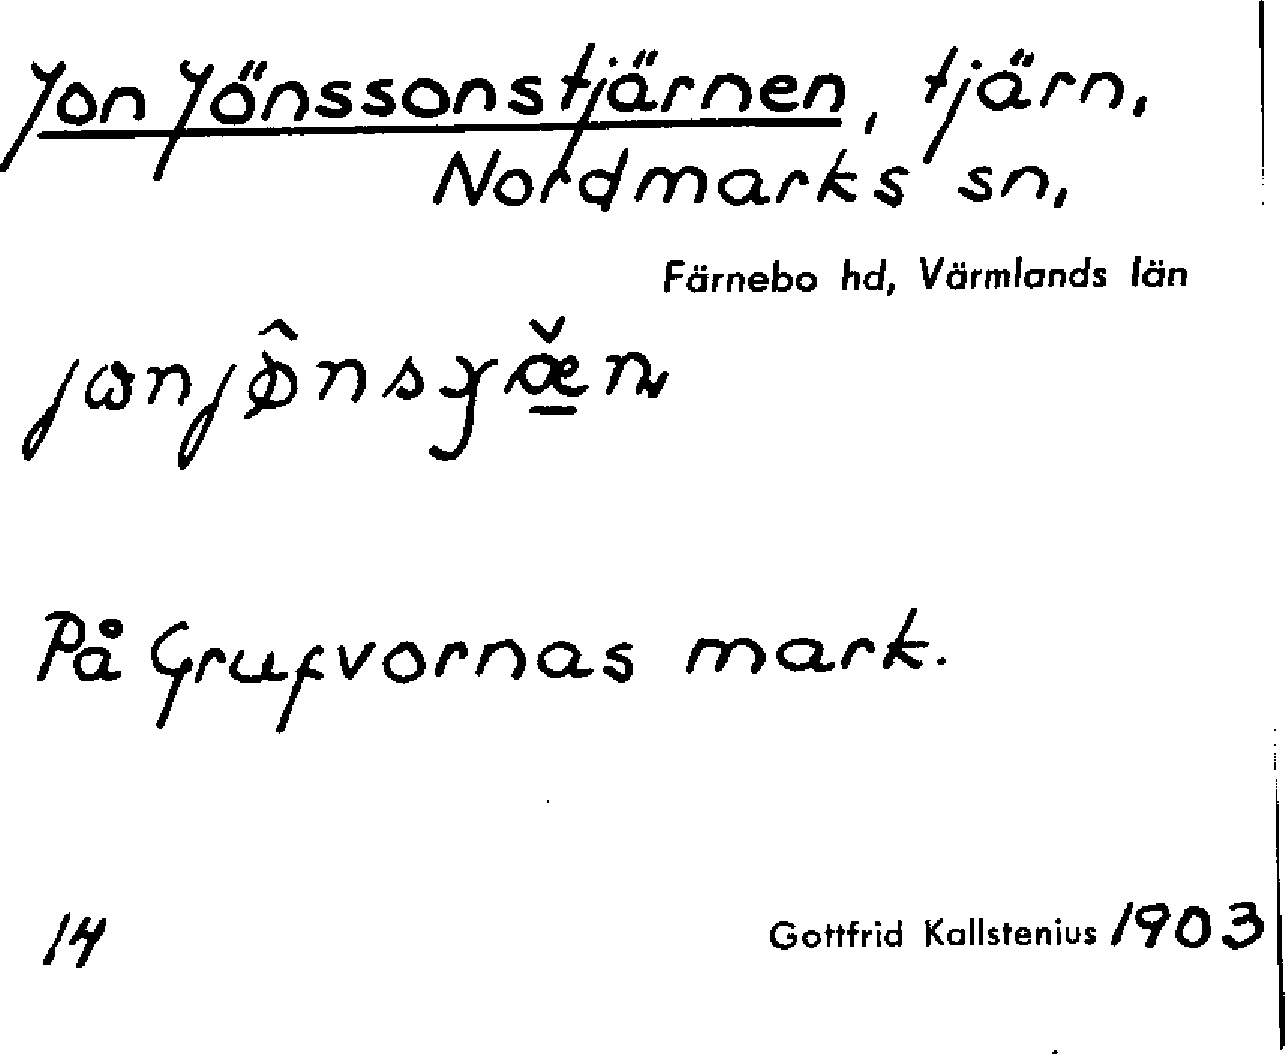 Jon Jönssonstjärnen, tjärn,
Nordmarks sn,
Färnebo hd, Värmlands län
På Grufvornas mark.
14
Gottfrid Kallstenius 1903